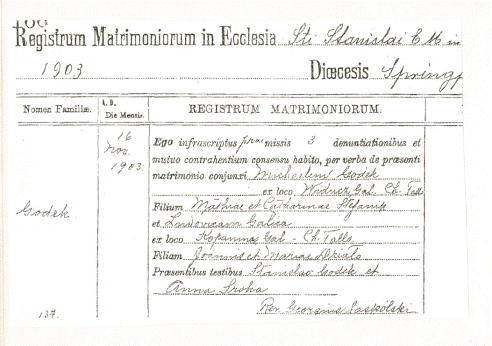 Registrum Matrimoniorum in Ecclesia Sti Stanislai E M in
1903 Diœcesis Springf
Nomen Familiæ. A. D. Die Mensis. REGISTRUM MATRIMONIORUM.
16
Nov.
1903.
Ego infrascriptus præmissis 3 denuntiationibus et
mutuo contrahentium consensu habito, per verba de præsenti
matrimonio conjunxi Michaelem Godek
ex loco Gal. Ch. Falls
Godek
Filium Mathiae et Catharinae
et Ludovicam Galica
ex loco Gal. Ch. Falls
Filiam Joannis et Mariae
Præsentibus testibus Stanislao Godek et
Anna Sroka
137. Rev Georgius Jaskolski